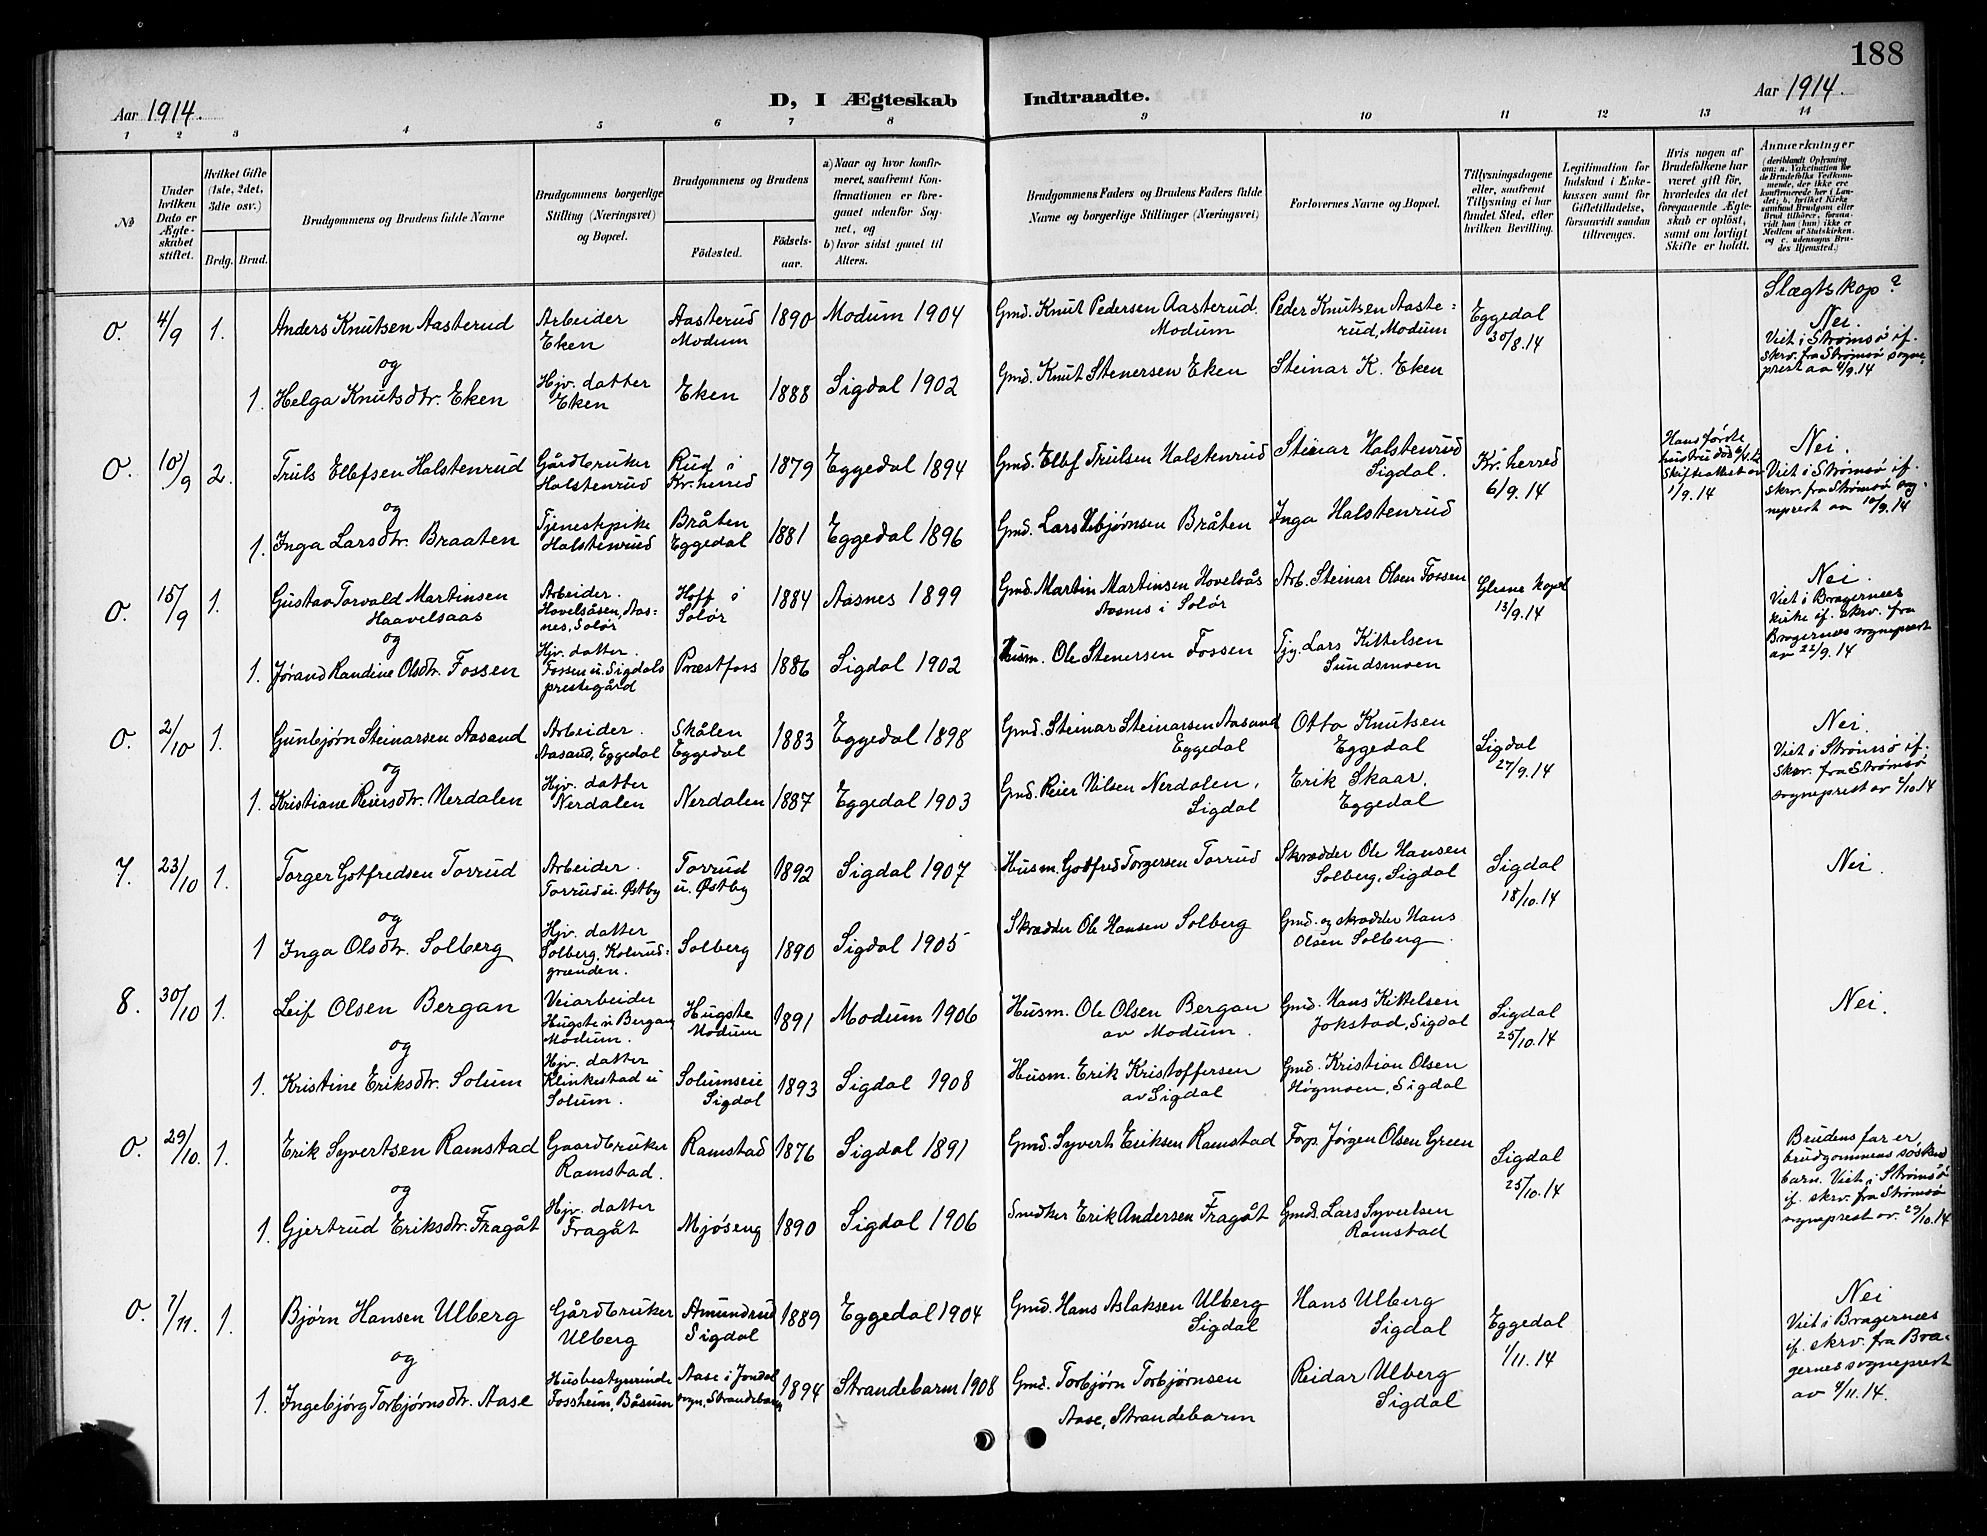 188
Aar 1914.
D, I Ægteskab Indtraadte.
Aar 1914.
1 2 3 4 5 6 7 8 9 10 11 12 13 14
No
Under hvilken Dato er Ægteskabet stiftet.
Hvilket Gifte (1ste, 2det, 3die osv.)
Brdg. Brud.
Brudgommens og Brudens fulde Navne
Brudgommens borgerlige Stilling (Næringsvei) og Bopæl.
Brudgommens og Brudens
Födested. Födselsaar.
a) Naar og hvor konfirmeret, saafremt Konfirmationen er foregaaet udenfor Sognet, og
b) hvor sidst gaaet til Alters.
Brudgommens Faders og Brudens Faders fulde Navne og borgerlige Stillinger (Næringsvei)
Forlovernes Navne og Bopæl.
Tillysningsdagene eller, saafremt Tillysning ei har fundet Sted, efter hvilken Bevilling.
Legitimation for Indskud i Enkekassen samt for Giftetilladelse, forsaavidt saadan tiltrænges.
Hvis nogen af Brudefolkene har været gift för, hvorledes da det foregaaende Ægteskab er oplöst, samt om lovligt Skifte er holdt.
Anmerkninger
(deriblandt Oplysning om: a. Vakcination for de Brudefolks Vedkommende, der ikke ere konfirmerede her i Landet; b. hvilket Kirkesamfund Brudgom eller Brud tilhörer, forsaavidt han (hun) ikke er Medlem af Statskirken. og c. udensogns Brudes Hjemsted.)
Slægtskap?
0. 4/9 1. Anders Knutsen Aasterud Arbeider Eken Aasterud Modum 1890 Modum 1904 Gmd. Knut Pedersen Aasterud. Modum Peder Knutsen Aasterud, Modum Eggedal 30/8.14 Nei. Viet i Strømsø if. skrv. fra Strømsø sogneprest av 4/9.14
og
1. Helga Knutsdtr. Eken Hjv. datter Eken Eken 1888 Sigdal 1902 Gmd. Knut Stenersen Eken Steinar K. Eken
0. 10/9 2. Truls Ellefsen Halstenrud Gårdbruker Halstenrud Rud i Kr.herred 1879 Eggedal 1894 Gmd. Ellef Trulsen Halstenrud Steinar Halstenrud Sigdal. Kr. herred 6/9.14 Hans første hustru død Skifteattest av 1/9.14 Nei. Viet i Strømsø if. skrv. fra Strømsø sogneprest av 10/9.14
og
1. Inga Larsdtr. Braaten Tjenestepike Halstenrud Bråten Eggedal 1881 Eggedal 1896 Gmd. Lars Vebjørnsen Bråten Inga Halstenrud
0. 15/9 1. Gustav Torvald Martinsen Haavelsaas Arbeider. Hovelsåsen, Aasnes, Solør Hoff i Solør 1884 Aasnes 1899 Gmd. Martin Martinsen Hovelsås Aasnes i Solør Arb. Steinar Olsen Fossen Glesne kapel 13/9.14 Nei. Viet i Bragernees kirke if. skrv. fra Bragernes sogneprest av 22/9.14
og
1. Jørand Randine Olsdtr. Fossen Hjv. datter. Fossen u. Sigdals prestegård Præstfoss 1886 Sigdal 1902 Husm. Ole Stenersen Fossen Tjg. Lars Kittelsen Sundsmoen
0. 2/10 1. Gunbjørn Steinarsen Aasand Arbeider. Aasand, Eggedal Skålen Eggedal 1883 Eggedal 1898 Gmd. Steinar Steinarsen Aasand Eggedal Otto Knutsen Eggedal Sigdal 27/9.14 Nei. Viet i Strømsø if. skrv. fra Strømsø sogneprest av 2/10.14
og
1. Kristiane Reiersdtr. Nerdalen Hjv. datter Nerdalen Nerdalen 1887 Eggedal 1903 Gmd. Reier Nilsen Nerdalen, Sigdal Erik Skaar, Eggedal
7. 23/10 1. Torger Gotfredsen Torrud Arbeider. Torrud u. Østby Torrud u. Østby 1892 Sigdal 1907 Husm. Gotfred Torgersen Torrud Skrædder Ole Hansen Solberg, Sigdal Sigdal 18/10.14 Nei.
og
1 Inga Olsdtr. Solberg Hjv. datter Solberg, Kolsrudgrænden. Solberg 1890 Sigdal 1905 Skrædder Ole Hansen Solberg Gmd. og skrædder Hans Olsen Solberg
8. 30/10 1. Leif Olsen Bergan Veiarbeider Hugste u Bergan Modum. Hugste Modum 1891 Modum 1906 Husm. Ole Olsen Bergan av Modum. Gmd. Hans Kittelsen Jokstad, Sigdal Sigdal 25/10.14 Nei.
og
1. Kristine Eriksdtr. Solum Hjv. datter Klinkestad u Solum. Solumseie Sigdal 1893 Sigdal 1908 Husm. Erik Kristoffersen av Sigdal Gmd. Kristian Olsen Høgmoen, Sigdal
0. 29/10. 1. Erik Syvertsen Ramstad Gaardbruker Ramstad. Ramstad 1876 Sigdal 1891 Gmd. Syvert Eriksen Ramstad Forp. Jørgen Olsen Green Sigdal 25/10.14 Brudens far er brudgommens søskendbarn. Viet i Strømsø if. skrv. fra Strømsø sogneprest av. 29/10.14
og
1. Gjertrud Eriksdtr. Fragåt Hjv. datter Fragåt Mjøseng 1890 Sigdal 1906 Snedker Erik Andersen Fragåt Gmd. Lars Syvertsen Ramstad
0. 7/11. 1. Bjørn Hansen Ulberg Gårdbruker Ulberg Amundrud Sigdal 1889 Eggedal 1904 Gmd. Hans Aslaksen Ulberg Sigdal Hans Ulberg Sigdal Eggedal 1/11.14 Nei Viet i Bragernees if. skrv. fra Bragernes sogneprest av 7/11.14.
og
1. Ingebjørg Torbjørnsdtr. Aase Husbestyrerinde Fossheim, Båsum Aase i Jondal sogn, Strandebarm 1894 Strandebarm 1908 Gmd. Torbjørn Torbjørnsen Aase, Strandebarm Reidar Ulberg Sigdal